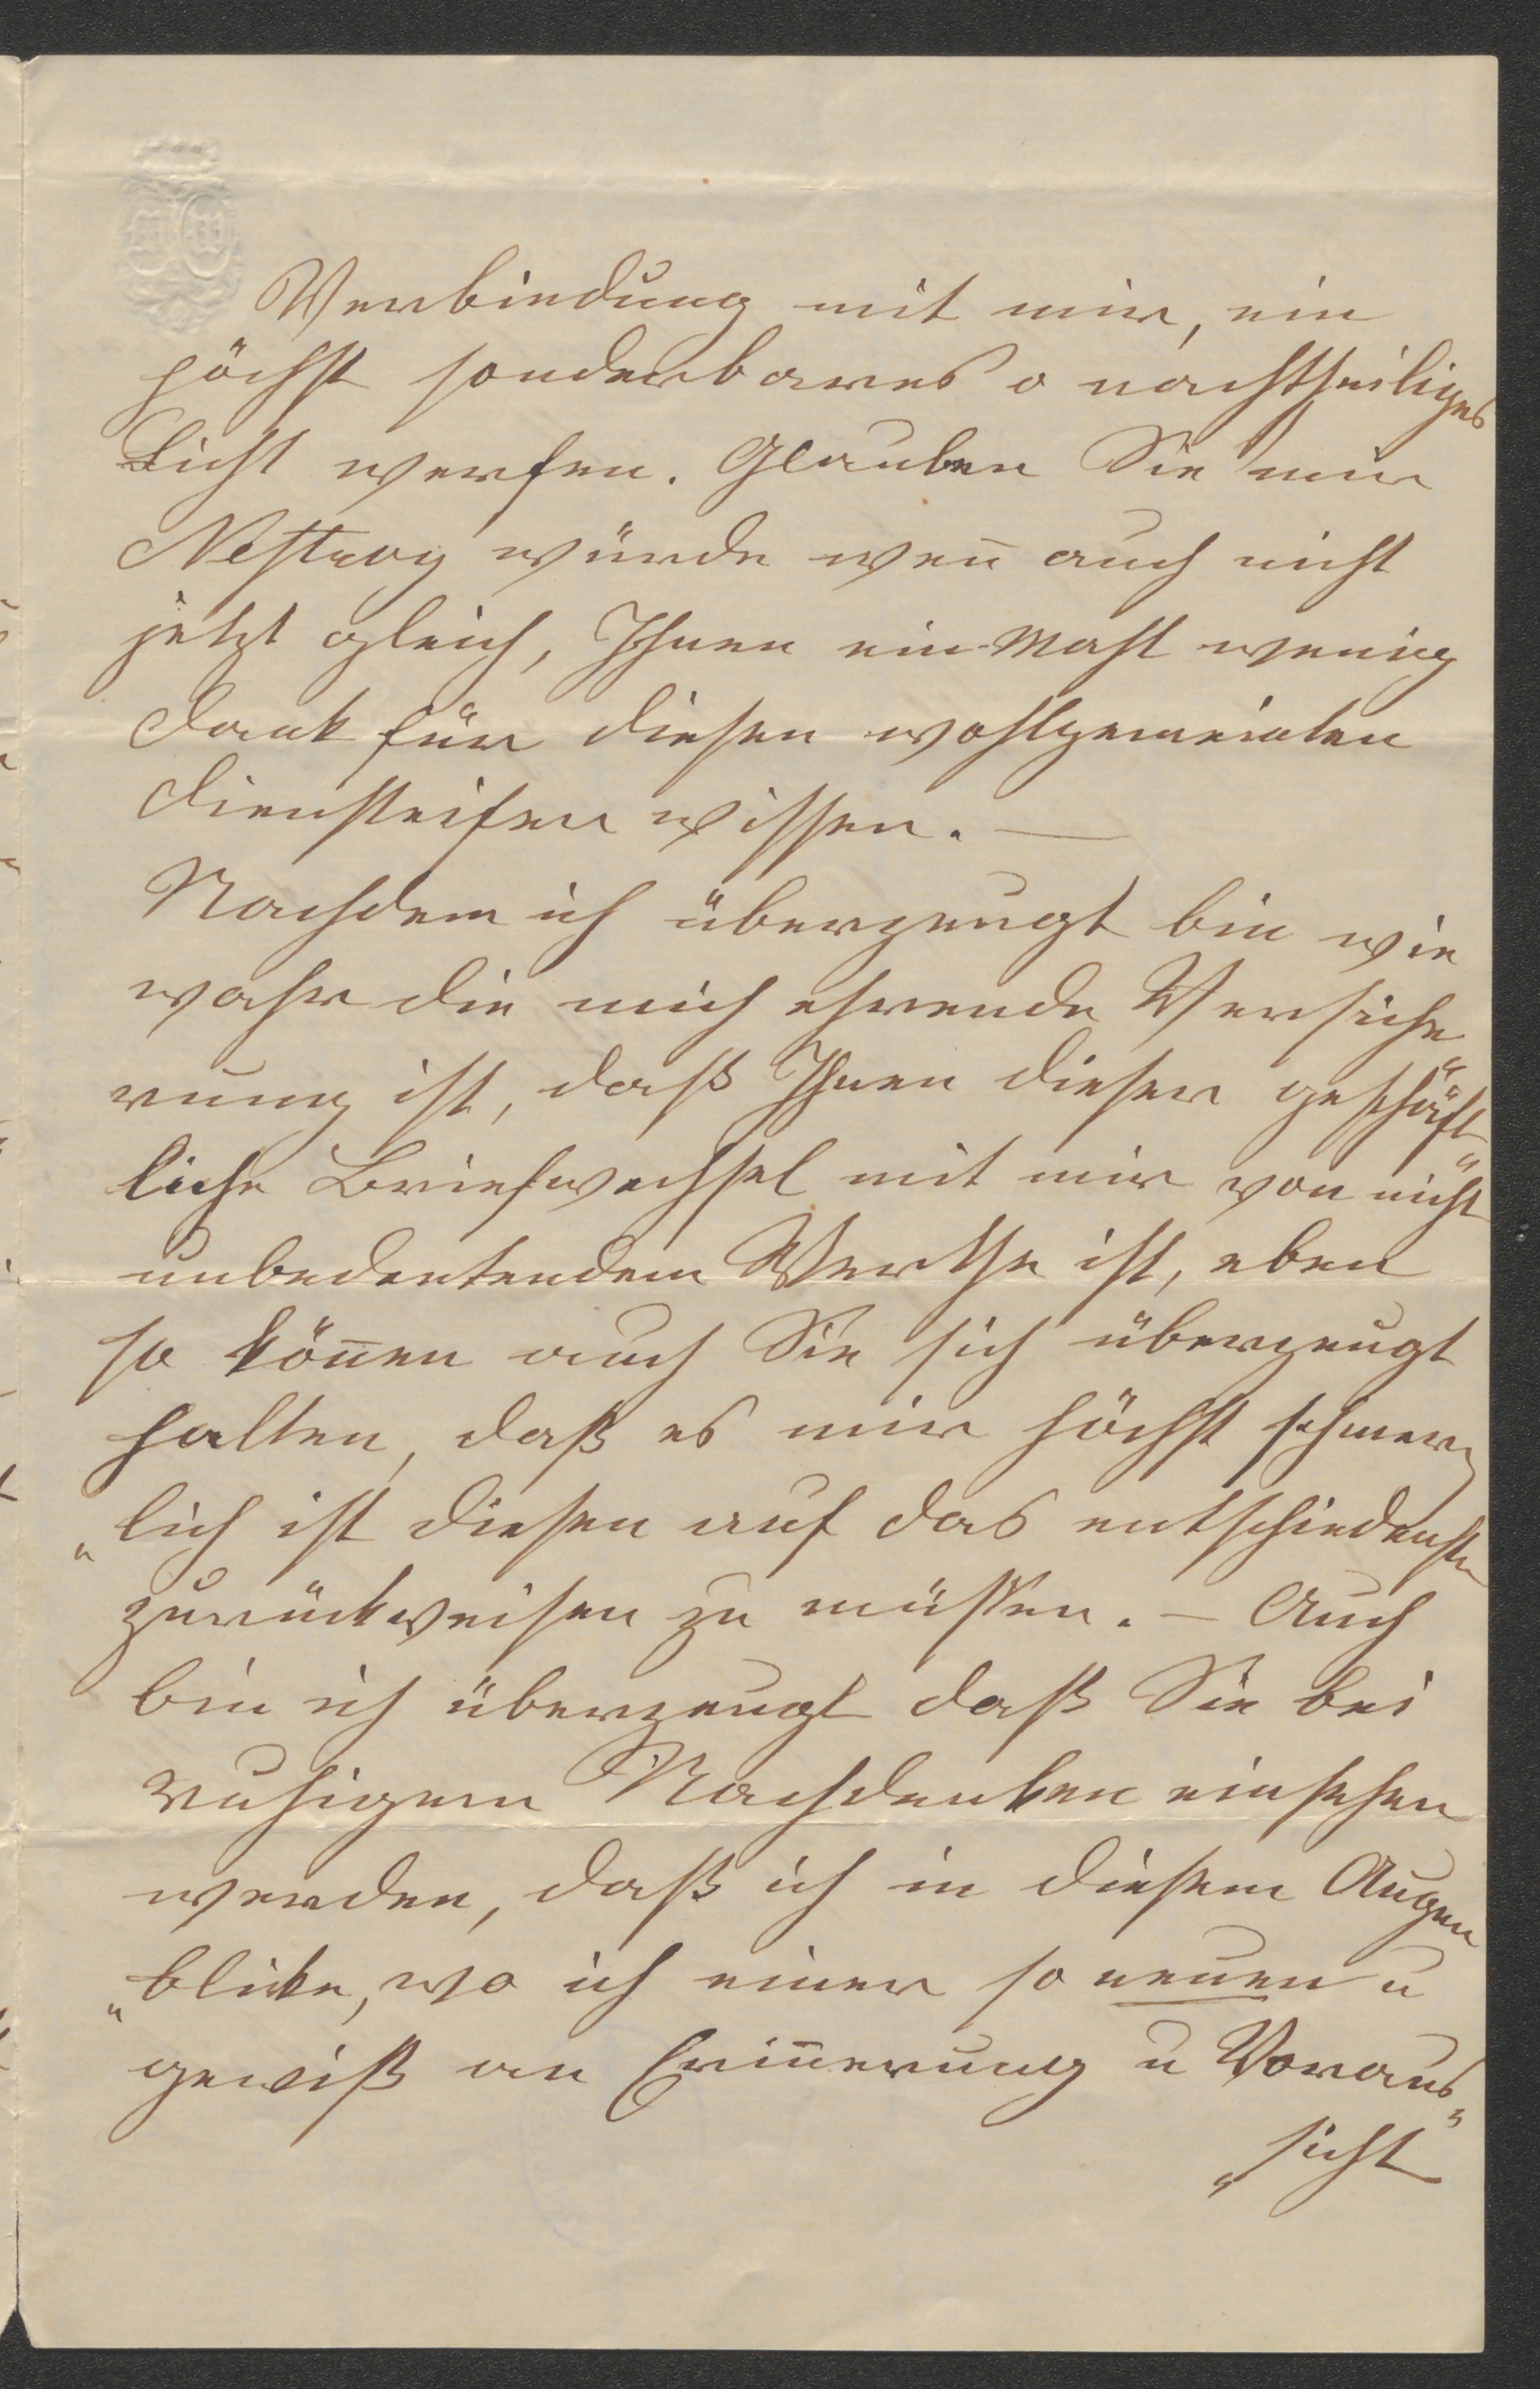 Verbindung mit mir, ein
höchst sonderbares o nachtheiliges
Licht werfen. Glauben Sie mir
Nestroy würde weñ auch nicht
jetzt gleich, Ihnen ein Mahl wenig
Dank für diesen wohlgemeinten
Diensteifer wissen. —
Nachdem ich überzeugt bin wie
wahr die mich ehrende Versiche
rung ist, daß Ihnen dieser geschäft„
liche Briefwechsel mit mir von nicht
unbedeutendem Werthe ist, eben
so köñen auch Sie sich überzeugt
halten, daß es mir höchst schmerz
„lich ist diesen auf das entschiedenste
zurückweisen zu müssen. — Auch
bin ich überzeugt daß Sie bei
ruhigem Nachdenken einsehen
werden, daß ich in diesem Augen
„blicke, wo ich einer so neuen u
gewiß an Eriñerung u Voraus„
„sicht